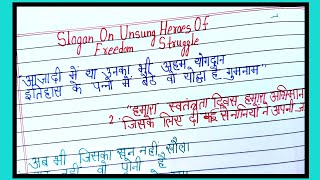 Slogan On Unsung Heroes Of
Freedom Struggle
आज़ादी में था उनका भी अहम योगदान
इतिहास के पन्नों में बैठे वो योद्धा है गुमनाम"
2 "हमारा स्वतंत्रता दिवस हमारा अभिमान
जिसके लिए दी कई सेनानियों ने अपनी
अब भी जिसका खून नहीं खौला
नहीं वो पानी है